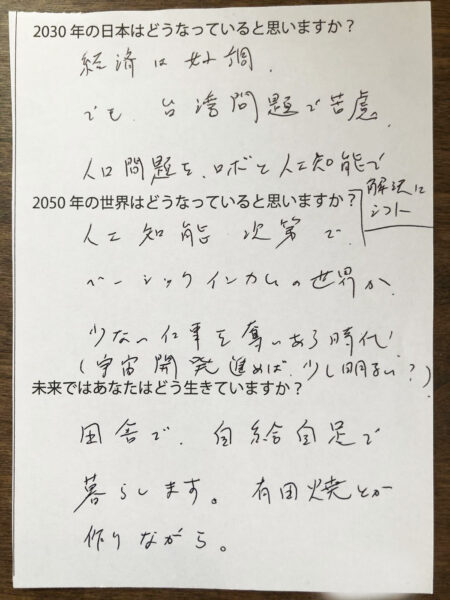 2030 年の日本はどうなっていると思いますか？
経済は好調、
でも、台湾問題で苦慮。
人口問題を、ロボと人工知能で
解決に
シフト
2050 年の世界はどうなっていると思いますか？
人工知能次第で、
ベーシックインカムの世界か、
少ない仕事を奪いある時代
(宇宙開発進めば、少し明るい？)
未来ではあなたはどう生きていますか？
田舎で、自給自足で
暮らします。有田焼とか
作りながら。